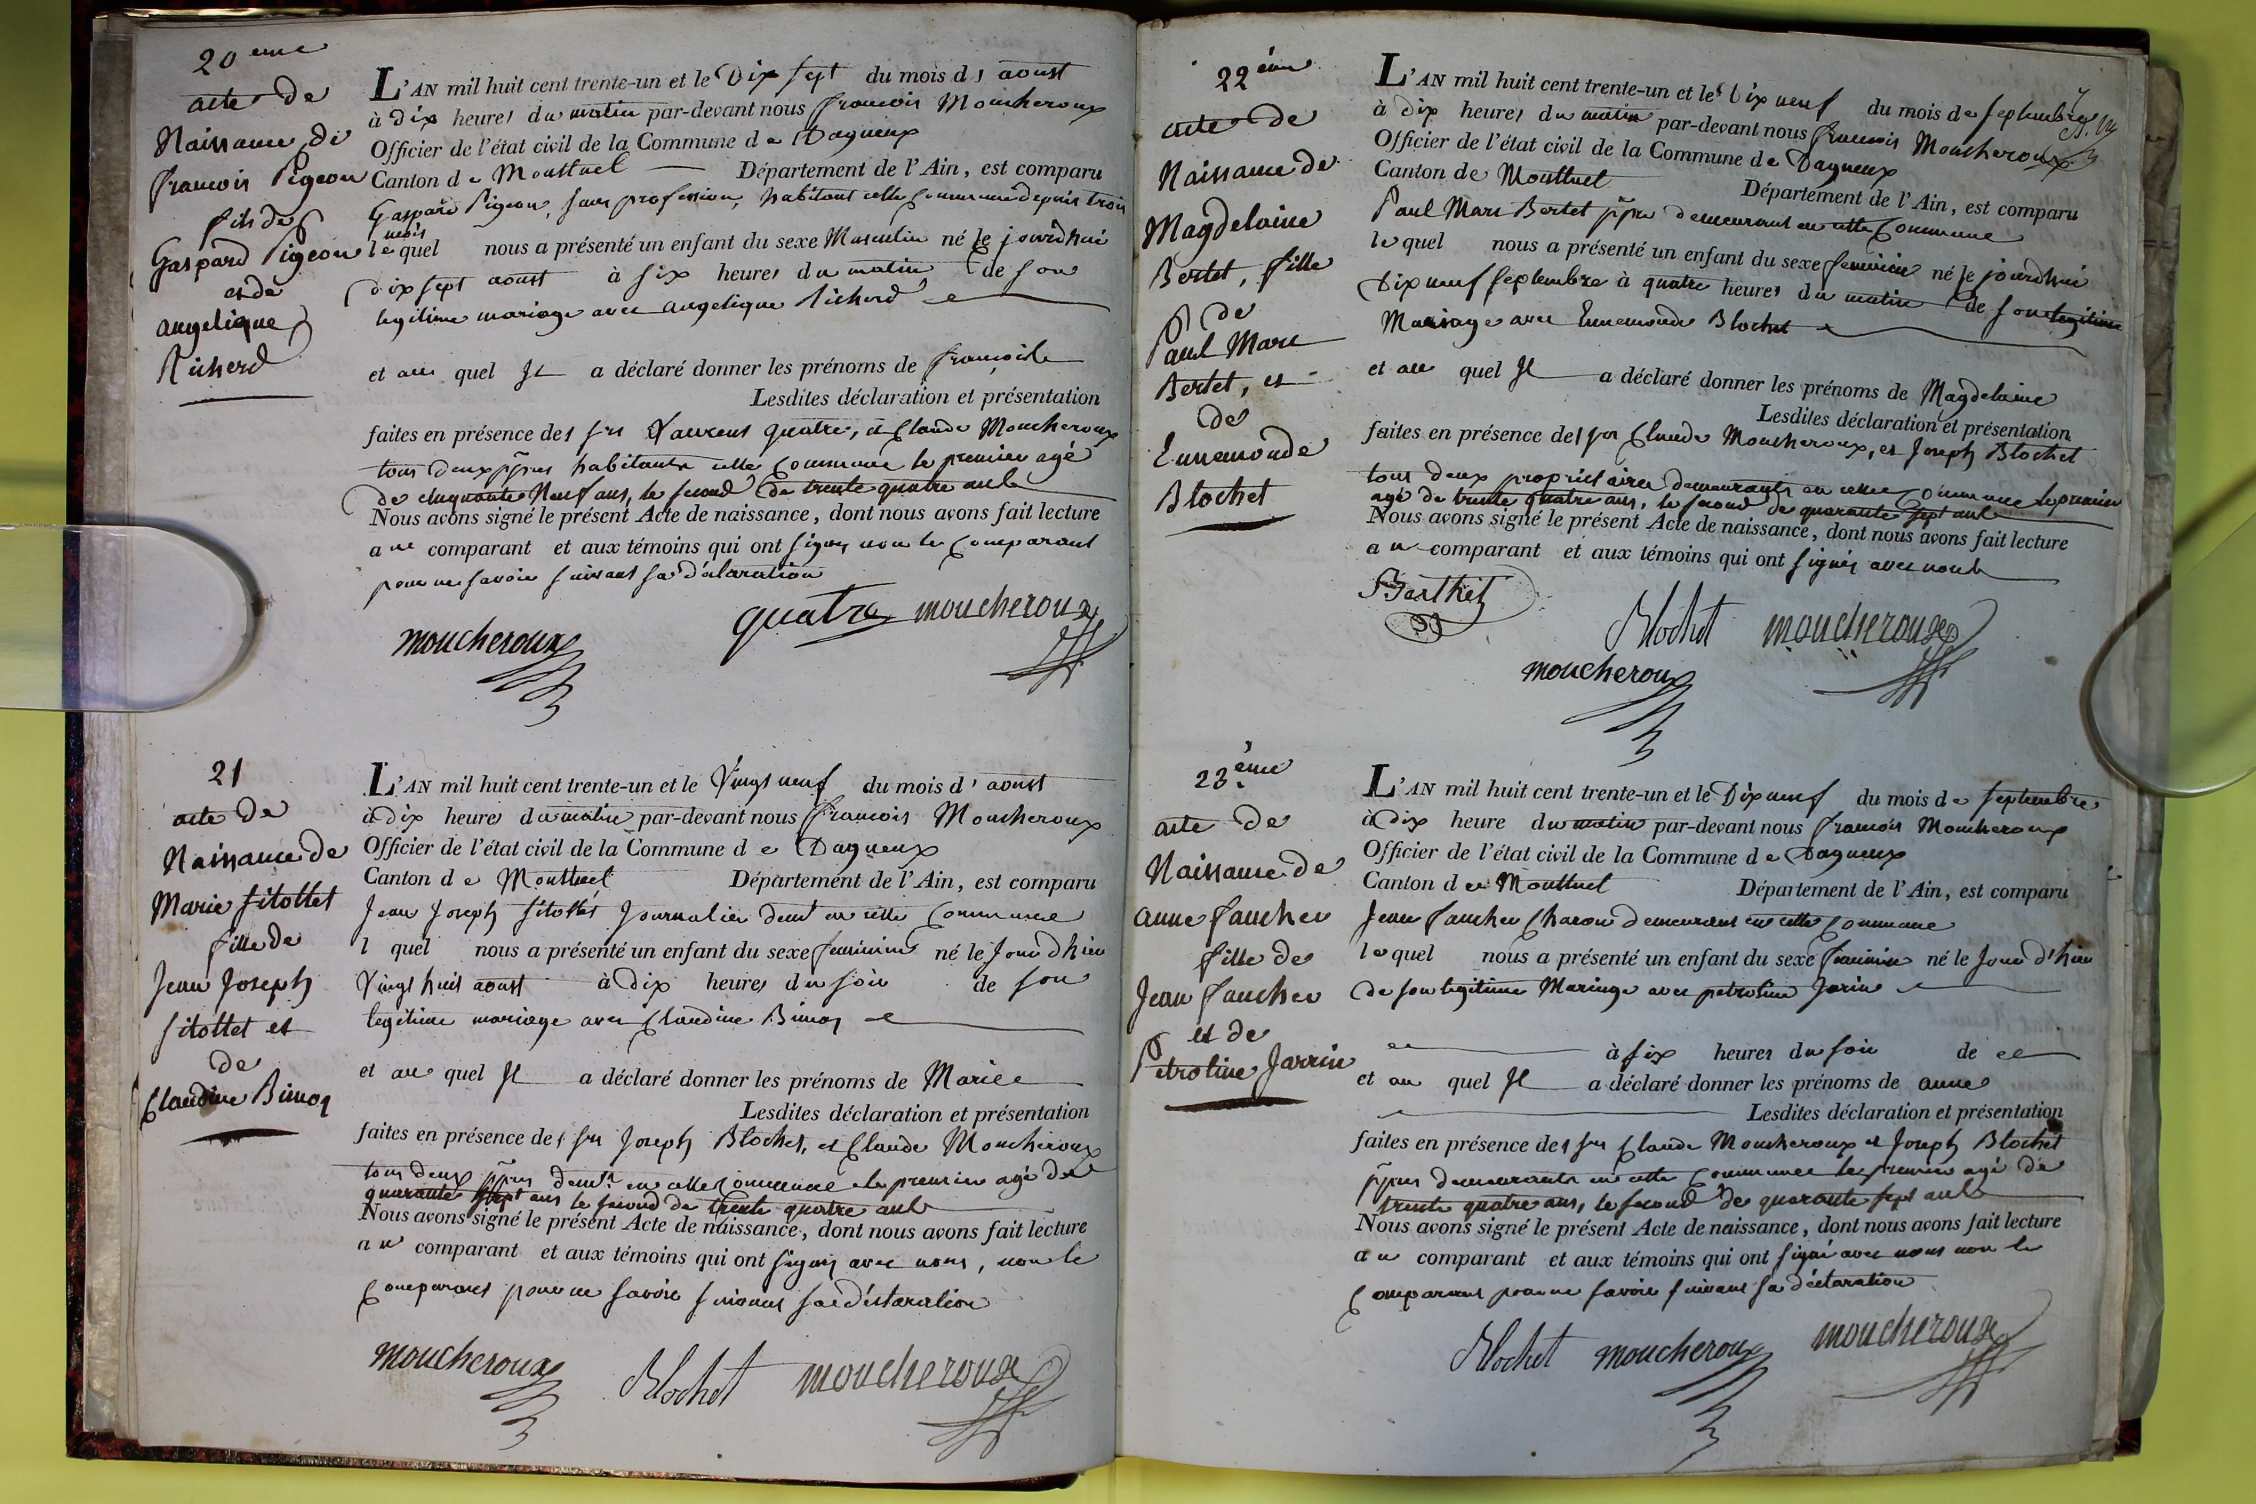 20 eme
acte de
Naissance de
francois Pigeon
fils de
Gaspard Pigeon
et de
angelique
Richerd
L'AN mil huit cent trente-un et le Dix sept du mois d' aoust
à dix heures du matin par-devant nous francois Moucheroux
Officier de l'état civil de la Commune de Dagneux
Canton de Montluel Département de l'Ain, est comparu
Gaspard Pigeon, sans profession, habitant cette Commune depuis trois
mois
lequel nous a présenté un enfant du sexe Masculin né le jourdhui
dix sept aoust à six heures du matin de son
legitime mariage avec angelique Richerd
et au quel Il a déclaré donner les prénoms de francois
Lesdites déclaration et présentation
faites en présence des srs Laurent quatre, et Claude Moucheroux
tous deux ppres habitants cette Commune le premier agé
de cinquante Neuf ans, le second de trente quatre ans
Nous avons signé le présent Acte de naissance, dont nous avons fait lecture
au comparant et aux témoins qui ont signés non le Comparant
pour ne savoir suivant sa déclaration
quatre moucheroux
moucheroux
21
acte de
Naissance de
Marie Sitottet
fille de
Jean Joseph
Sitottet et
de
Claudine
L'AN mil huit cent trente-un et le Vingt neuf du mois d' aoust
à dix heures du matin par-devant nous francois Moucheroux
Officier de l'état civil de la Commune de Dagneux
Canton de Montluel Département de l'Ain, est comparu
Jean Joseph Sitottet Journalier demt en cette Commune
l quel nous a présenté un enfant du sexe feminin né le Jour d'hier
Vingt huit aoust à dix heures du soir de son
legitime mariage avec Claudine
et au quel Il a déclaré donner les prénoms de Marie
Lesdites déclaration et présentation
faites en présence des srs Joseph Blochet, et Claude Moucheroux
tous deux ppres demts en cette Commune le premier agé de
quarante sept ans le second de trente quatre ans
Nous avons signé le présent Acte de naissance, dont nous avons fait lecture
au comparant et aux témoins qui ont signés avec nous, non le
Comparant pour ne savoir suivant sa déclaration
moucheroux Blochet moucheroux
22 ème
acte de
Naissance de
Magdelaine
Bertet, fille
de
Paul Marc
Bertet, et
de
Ennemonde
Blochet
L'AN mil huit cent trente-un et le Dix neuf du mois de septembre
à dix heures du matin par-devant nous francois Moucheroux
Officier de l'état civil de la Commune de Dagneux
Canton de Montluel Département de l'Ain, est comparu
Paul Marc Bertet ppre demeurant en cette Commune
lequel nous a présenté un enfant du sexe feminin né le jourdhui
Dix neuf septembre à quatre heures du matin de son legitime
Mariage avec Ennemonde Blochet
et au quel Il a déclaré donner les prénoms de Magdelaine
Lesdites déclaration et présentation
faites en présence des srs Claude Moucheroux, et Joseph Blochet
tous deux propriétaires demeurants en cette Commune le premier
agé de trente quatre ans, le second de quarante sept ans
Nous avons signé le présent Acte de naissance, dont nous avons fait lecture
au comparant et aux témoins qui ont signés avec nous
Berthet
Blochet moucheroux
moucheroux
23. ème
acte de
Naissance de
anne faucher
fille de
Jean faucher
et de
Petroline Jarrin
L'AN mil huit cent trente-un et le Dix neuf du mois de septembre
à Dix heure du matin par-devant nous francois Moucheroux
Officier de l'état civil de la Commune de Dagneux
Canton de Montluel Département de l'Ain, est comparu
Jean faucher Charon demeurant en cette Commune
lequel nous a présenté un enfant du sexe feminin né le Jour d'hier
de son legitime Mariage avec petroline Jarin
à six heures du soir de
et au quel Il a déclaré donner les prénoms de anne
Lesdites déclaration et présentation
faites en présence des srs Claude Moucheroux et Joseph Blochet
ppres demeurants en cette Commune le premier agé de
trente quatre ans, le second de quarante sept ans
Nous avons signé le présent Acte de naissance, dont nous avons fait lecture
au comparant et aux témoins qui ont signé avec nous non le
Comparant pour ne savoir suivant sa déclaration
Blochet moucheroux moucheroux